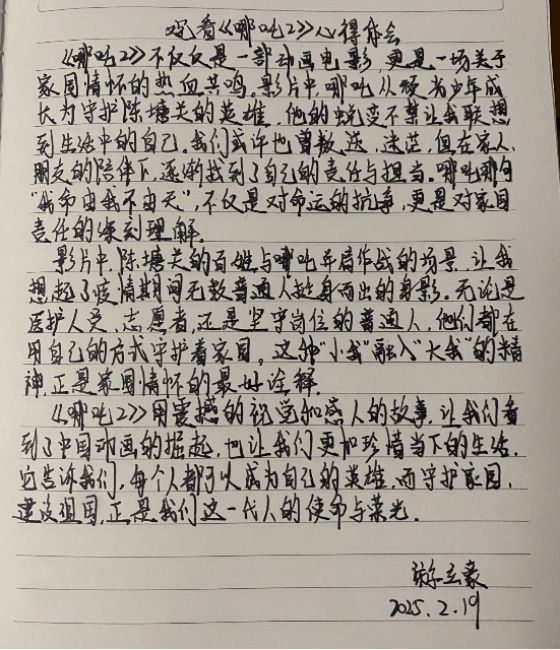 观看《哪吒2》心得体会
《哪吒2》不仅仅是一部动画电影,更是一场关于
家国情怀的热血共鸣。影片中,哪吒从顽劣少年成
长为守护陈塘关的英雄,他的蜕变不禁让我联想
到生活中的自己。我们或许也曾叛逆,迷茫,但在家人,
朋友的陪伴下,逐渐找到了自己的责任与担当。哪吒那句
"我命由我不由天",不仅是对命运的抗争,更是对家国
责任的深刻理解.
影片中,陈塘关的百姓与哪吒并肩作战的场景,让我
想起了疫情期间无数普通人挺身而出的身影。无论是
医护人员,志愿者,还是坚守岗位的普通人,他们都在
用自己的方式守护着家园。这种"小我"融入"大我"的精
神,正是家国情怀的最好诠释.
《哪吒2》用震撼的视觉和感人的故事,让我们看
到了中国动画的崛起,也让我们更加珍惜当下的生活.
它告诉我们,每个人都可以成为自己的英雄,而守护家园,
建设祖国,正是我们这一代人的使命与荣光.
游立豪
2025.2.19